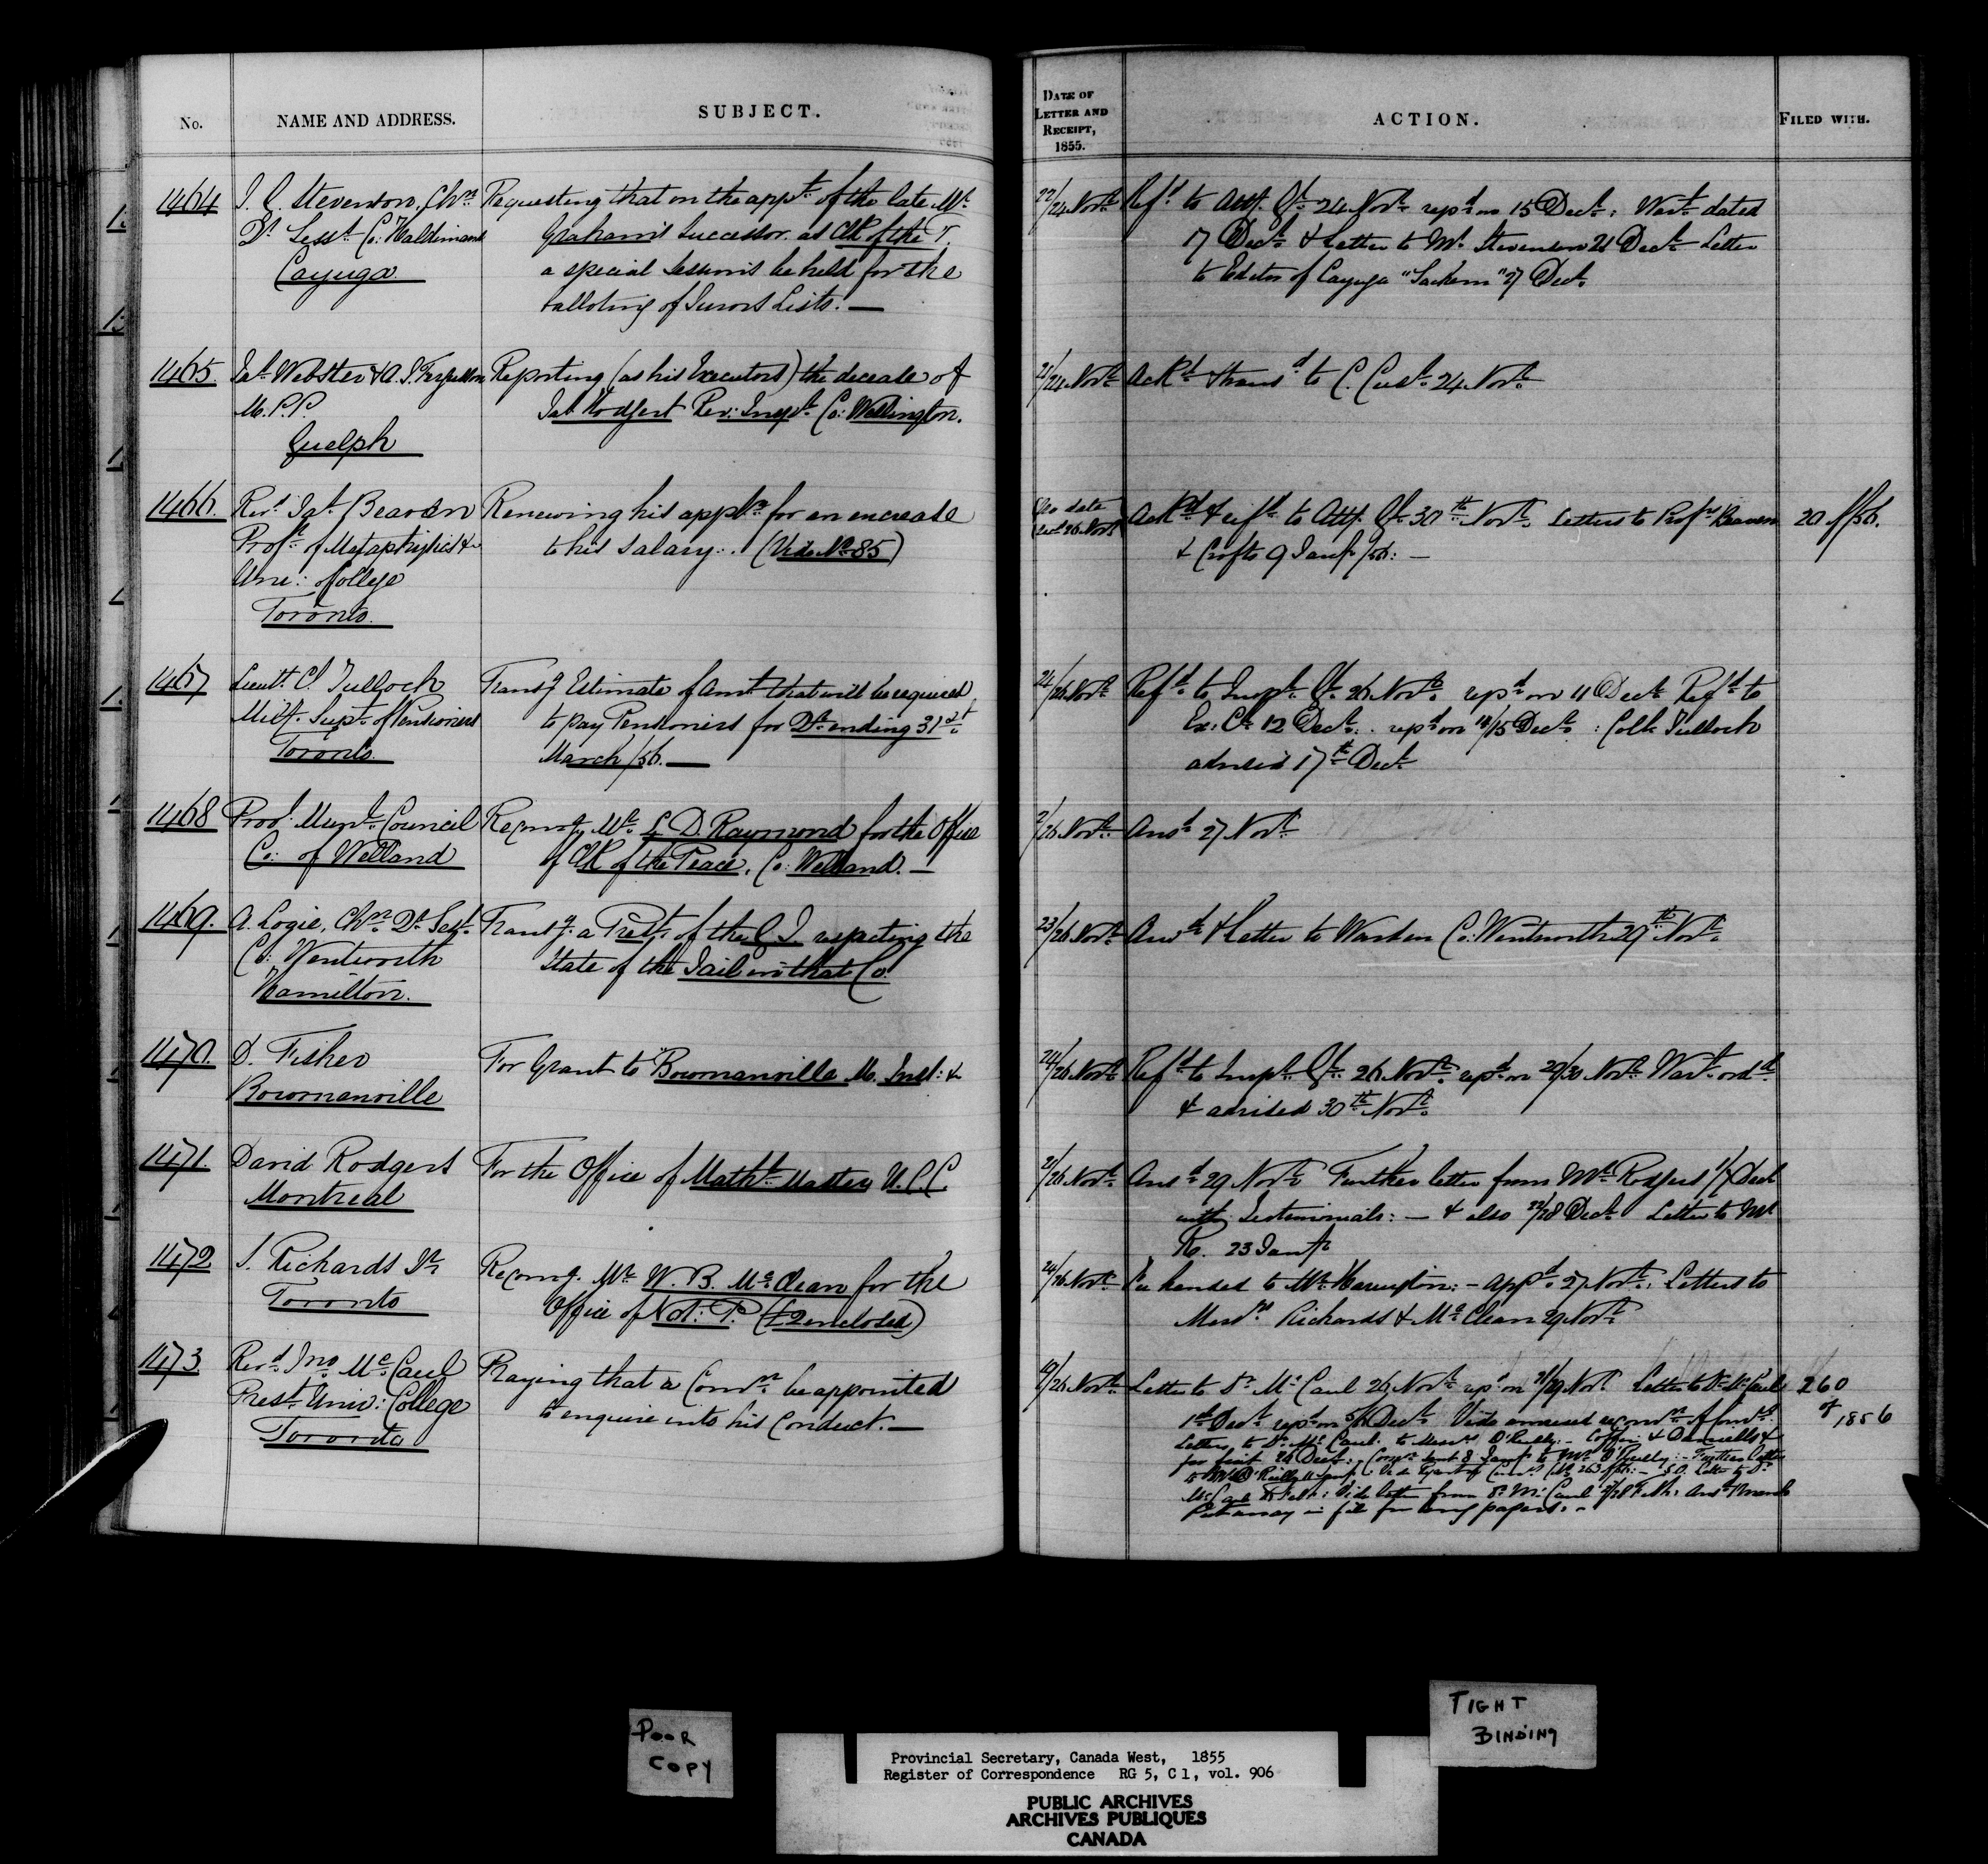 No.
NAME AND ADDRESS.
SUBJECT.
DATE OF
LETTER AND
RECEIPT,
1855.
ACTION.
FILED WITH.
1464
Stevenson, Chn
Qr Sesst Co: Haldimand
Cayuga
Requesting that on the appt of the late Mr
Graham's Successor as Clk of the P.
a special Sessions be held for the
balloting of Jurors Lists. —
22/24 Novr
Refd to Atty. Gl 24 Novr repd on 15 Decr: Wart dated
17 Decr & letter to Mr Stevenson 21 Decr Letter
to Editor of Cayuga "Sachem" 27 Decr
1465.
Jas Webster & A. J. Fergusson
M. P. P.
Guelph
Reporting (as his Executors) the decease of
Jas Hodgert Rev: Inspr Co: Wellington.
21/24 Novr
Ackd & transd to C. Cust. 24 Novr
1466.
Revd Jas Beaven
Profr of Metaphysics &c
Uni: College
Toronto.
Renewing his appln for an increase
to his Salary. . (Vide No 85)
No date
Recd 26 Novr
Ackd & refd to Atty. Gl 30th Novr. Letters to Profrs Beaven
& Croft 9 Jany /56: —
20 /56.
1467
Lieutt Cl Tulloch
Milty. Supt of Pensioners
Toronto.
Transg Estimate of Amt that will be required
to pay Pensioners for Qr ending 31st
March /56. —
24/26 Novr
Refd to Inspr Gl 26 Novr repd on 11 Decr Refd to
Ex: Cl 12 Decr. repd on 14/15 Decr : Coll Tulloch
advised 17th Decr
1468
Provl Munl Council
Co: of Welland
Recomg Mr L. D. Raymond for the Office
of Clk of the Peace, Co: Welland. —
26 Novr
Ansd 27 Novr
1469.
A. Logie, Chn Qr Sesst
Co: Wentworth
Hamilton.
Transg. a Prest. of the G. J. respecting the
State of the Jail in that Co.
23/26 Novr
Ansd & letter to Warden Co: Wentworth 29th Novr.
1470.
D. Fisher
Bowmanville
For Grant to Bowmanville M. Inst: &
24/26 Novr
Refd to Inspr Gl 26 Novr. repd on 29/30 Novr Wart ordd
& advised 30th Novr.
1471.
David Rodgers
Montreal
For the Office of Mathl Master U. C. C.
21/26 Novr
Ansd 29 Novr Further letter from Mr Rodgers Decr
with Testimonials: — & also 22/28 Decr Letter to Mr
R. 23 Jany
1472
S. Richards Jr
Toronto
Recomg. Mr W. B. McClean for the
Office of Not: P. (£2 enclosed)
24/26 Novr
Fee handed to Mr Harrington: — appd 27 Novr: Letters to
Messrs Richards & McClean 29 Novr
1473
Revd Jno McCaul
Prest Univ: College
Toronto
Praying that a Comn be appointed
to enquire into his Conduct. —
19/26 Novr
Letter to Dr McCaul 26 Novr repd on 28/29 Novr Letter to Dr McCaul
1st Decr repd on 5/6 Decr Vide annexed
Letters to Dr McCaul to Messrs O'Reilly — Coffin &
24 Decr. Comn sent 8 Jany to Mr O'Reilly: — Further letter
to Mr O'Reilly Vide Report of Comrs No 263 /56: — Letter to Dr
McCaul Feby: Vide letter from Dr McCaul Feby: Ansd March
Put away in file for long papers. —
260
of
1856
POOR
COPY
TIGHT
BINDING
Provincial Secretary, Canada West, 1855
Register of Correspondence RG 5, C 1, vol. 906
PUBLIC ARCHIVES
ARCHIVES PUBLIQUES
CANADA